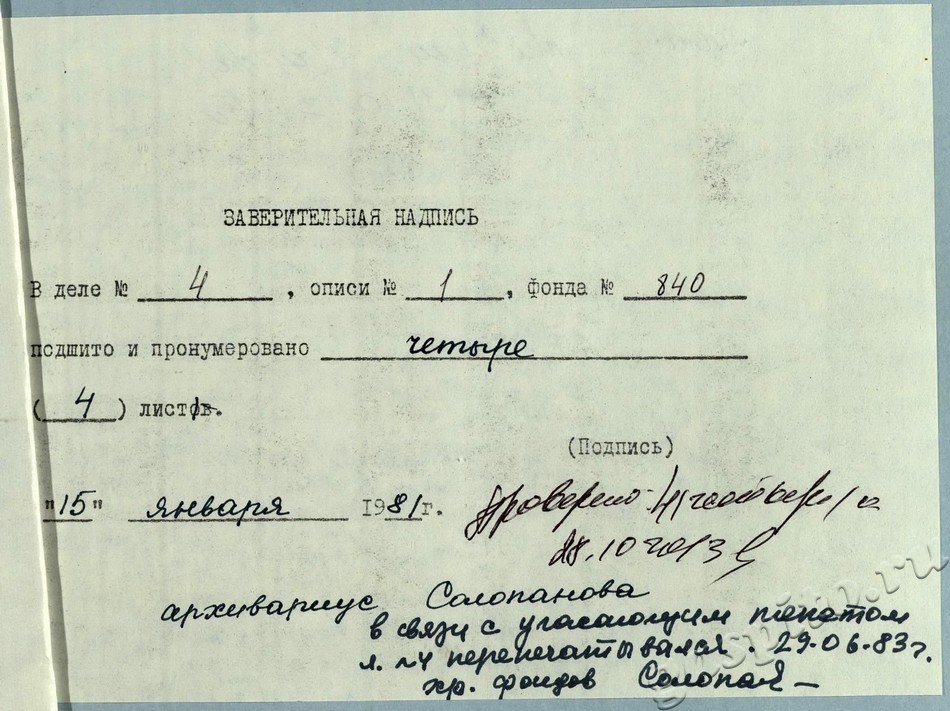 ЗАВЕРИТЕЛЬНАЯ НАДПИСЬ
В деле № 4, описи № 1, фонда № 840
подшито и пронумеровано четыре
(4) листов.
(Подпись)
"15" января 1981г.
Проверено 4
28.10.2013
архивариус Солопанова
в связи с угасающим текстом
л. 4 перепечатывался. 29.06.83г.
хр. фондов Солопа